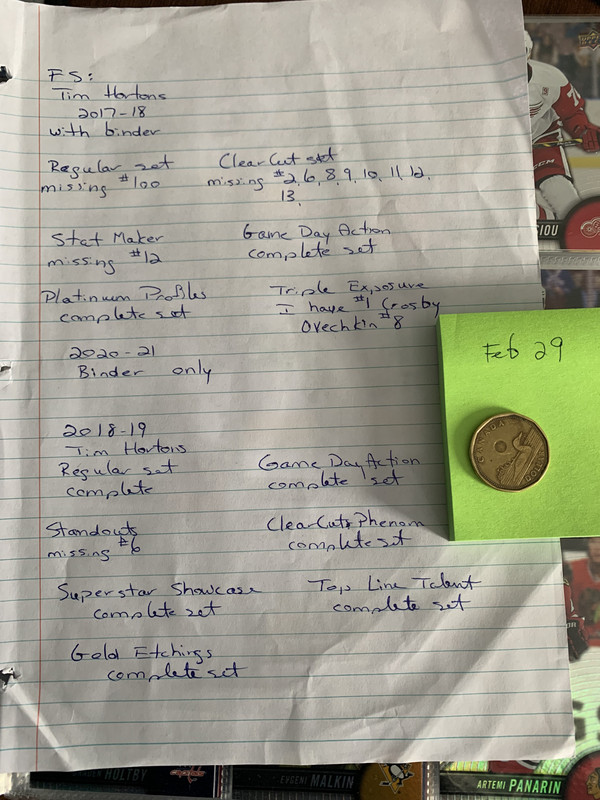 FS:
Tim Hortons
2017-18
with binder
Regular set
missing #100
ClearCut set
missing #2, 6, 8, 9, 10, 11, 12,
13,
Stat Maker
missing #12
Game Day Action
complete set
Platinum Profiles
complete set
Triple Exposure
I have #1 Crosby
Ovechkin #8
2020-21
Binder only
2018-19
Tim Hortons
Regular set
complete
Game Day Action
complete set
Standouts
missing #6
ClearCut Phenom
complete set
Superstar Showcase
complete set
Top Line Talent
complete set
Gold Etchings
complete set
Feb 29
CANADA
DOLLAR
UPPER DECK
CCM
SIOU
HOLTBY
EVGENI MALKIN
ARTEMI PANARIN